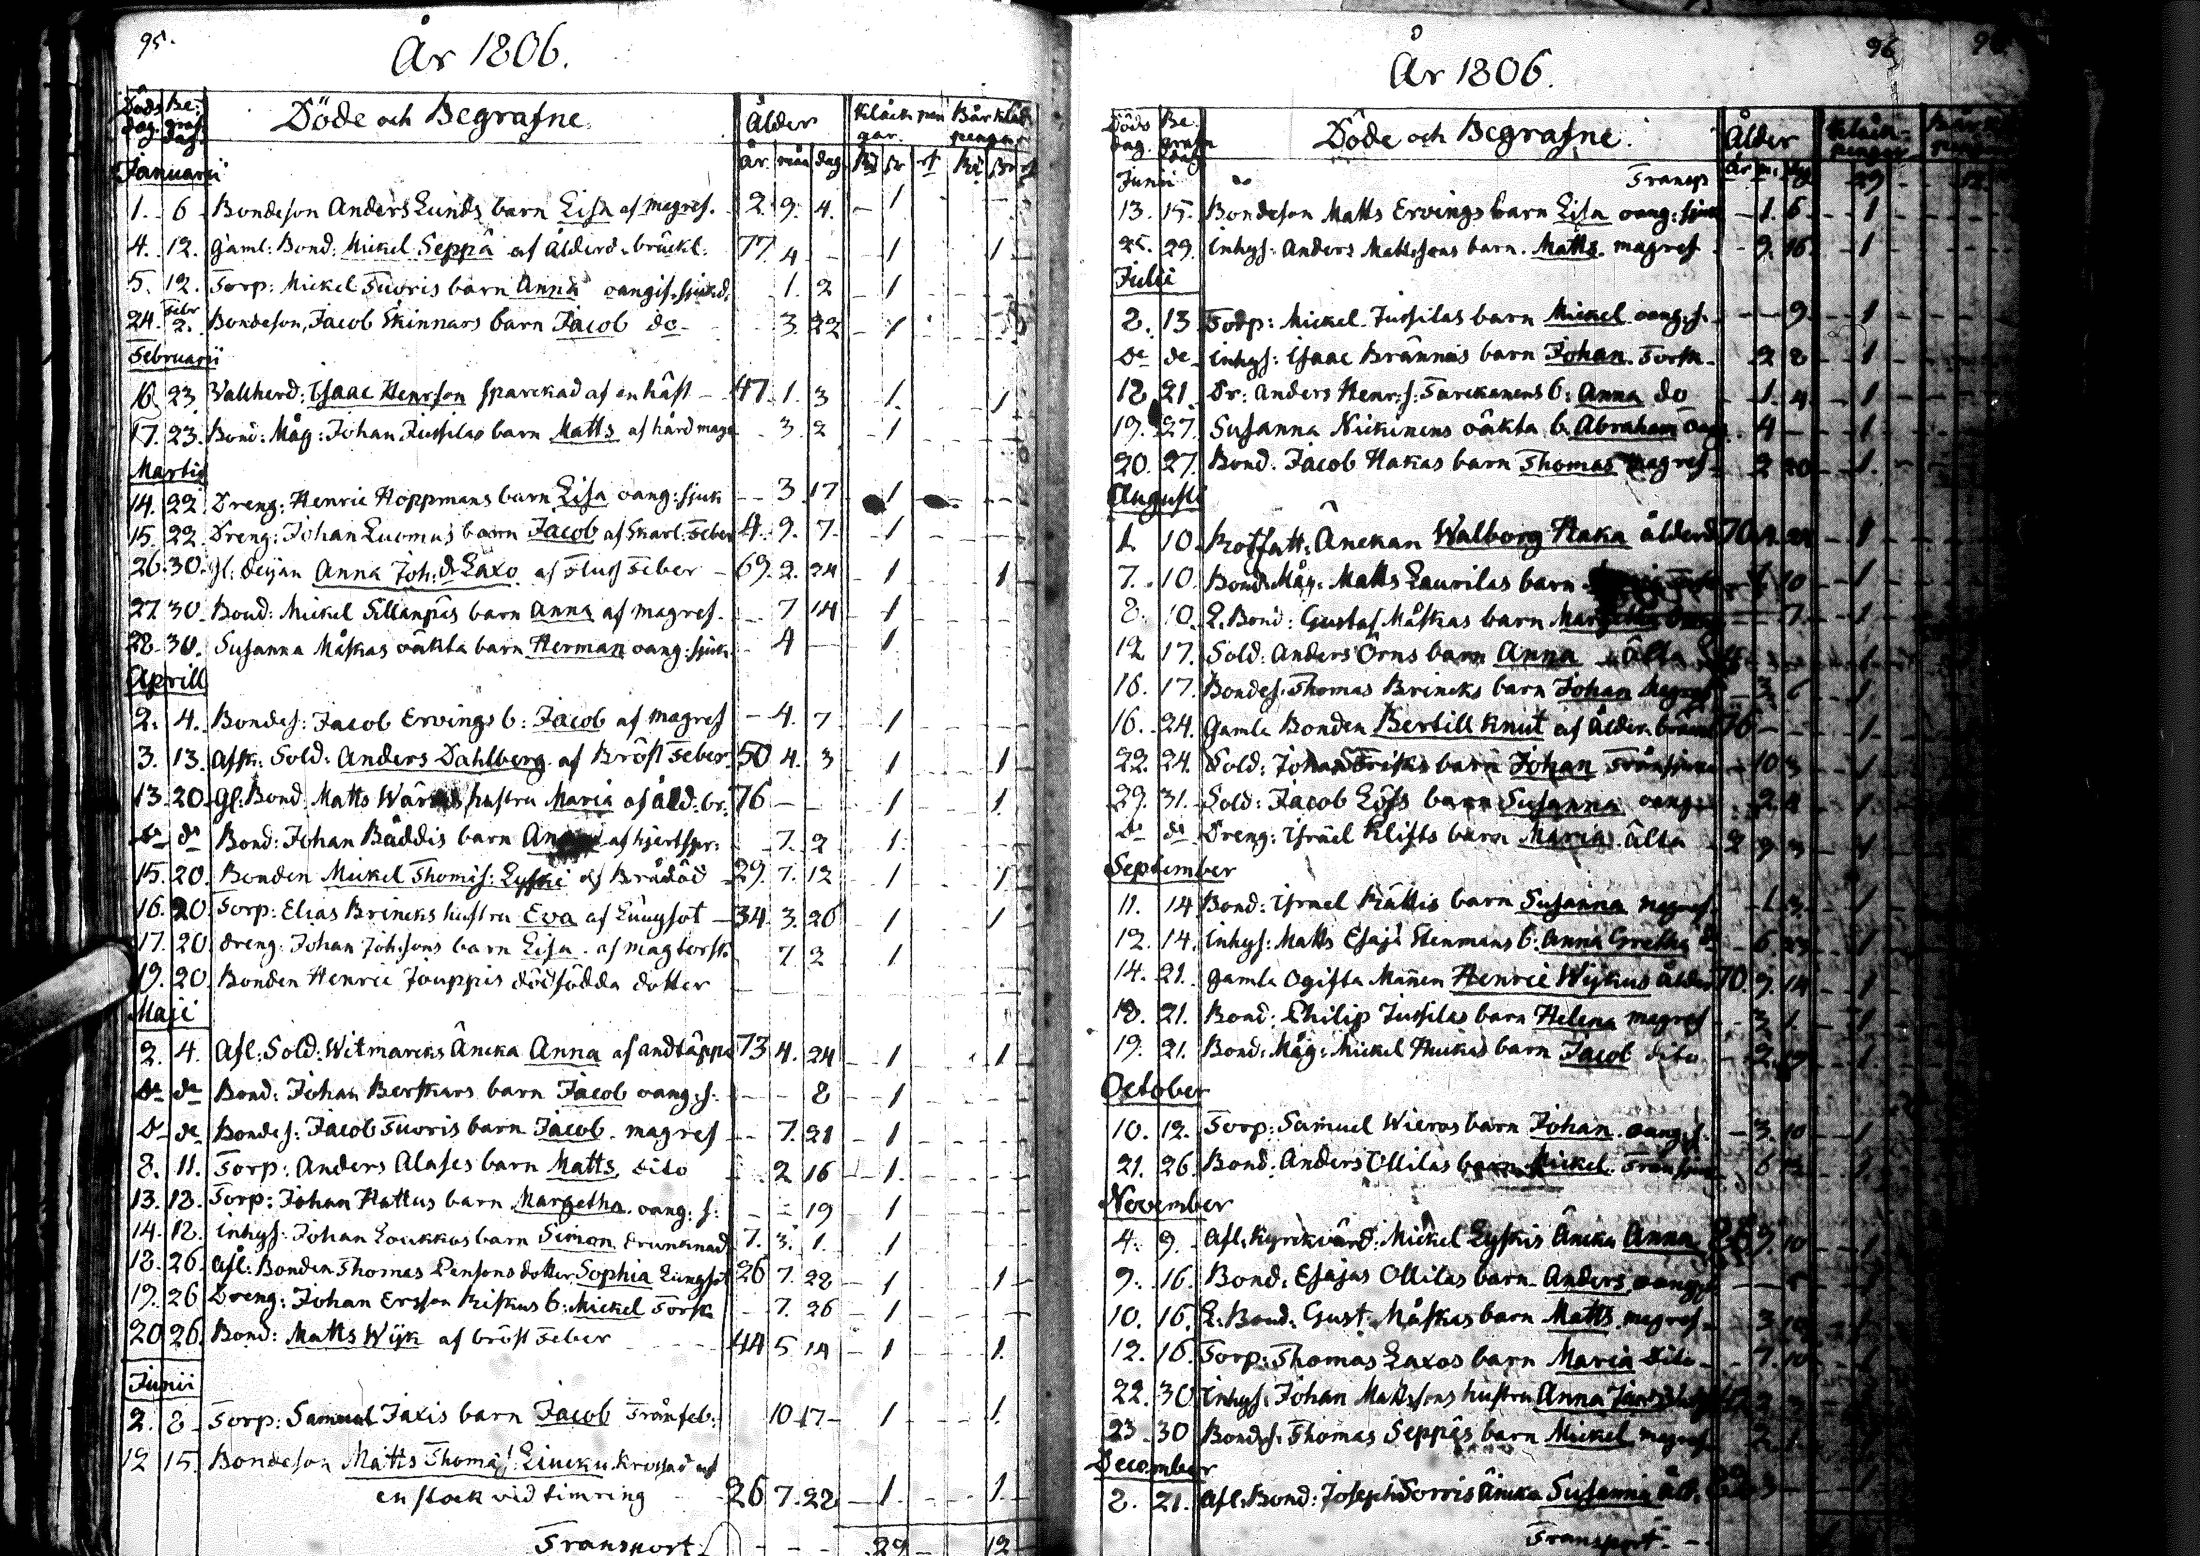 95.
År 1806.
Döds dag. Be: graf: dag. Döde och Begrafne. Ålder Klåck pen gar. Bår kläd: penga
År mån dag
Januarii
1. 6 Bondeson Anders Lunds barn Lisa af magref. 2. 9. 4. 1
4. 12. Gaml: Bond: Mickel Seppä af Ålderd. bräckl: 77 4 1 1
5. 12. Torp: Mickel Tuoris barn Anna oangif. sjukd. 1. 2 1
24. Febr 2. Bondeson Jacob Skinnars barn Jacob do 3. 22 1
Februarii
16. 23. Wallherd: Isaac Henrson sparckad af en häst 47. 1. 3 1. 1
17. 23. Bond: Måg: Johan Jussilas barn Matts af hård mage 3. 2 1
Martii
14. 22. Dreng: Henric Hoppmans barn Lisa oang: sjuk 3. 17 1
15. 22. Dreng: Johan Luomus barn Jacob af Skarl: Feber 4. 9. 7. 1
26. 30. Gl: Deijan Anna Joh: d. Laxo af Fluss Feber 69. 2. 24 1 1
27. 30. Bond: Mickel Sillanpäs barn Anna af magref. 7 14 1
28. 30. Susanna Måskas oäkta barn Herman oang: sjuk. 4 1.
Aprill
2. 4. Bondes: Jacob Ervings b: Jacob af magref 4. 7 1
3. 13. Afsk: Sold: Anders Dahlberg af Bröst Feber 50 4. 3 1 1
13. 20. Gl. Bond. Matts hustru Maria af åld: br: 76 1 1.
do do Bond: Johan Bäddis barn af hjertspr: 7. 2 1.
15. 20. Bonden Mickel Thomis: Lyski af Brådöd 29. 7. 12 1 1
16. 20. Torp: Elias Brincks hustru Eva af Lungsot 34. 3. 26 1 1
17. 20. Dreng: Johan Joh:sons barn Lisa af magtorsk. 7. 2 1
19. 20 Bonden Henric Jouppis dödfödda dotter
Maji
2. 4. Afl: Sold: Witmarcks Äncka Anna af andtäppa 73 4. 24 1 1
do do Bond: Johan Berskars barn Jacob oang: s: 8 1
do do Bondes: Jacob Tuoris barn Jacob. magref 7. 21 1
8. 11. Torp: Anders Alases barn Matts dito 2 16 1.
13. 18. Torp: Johan Hattus barn Margetha oang: s: 19 1
14. 18. Inhys: Johan Loukkos barn Simon. drunknad 7. 3. 1. 1
18. 26. Afl: Bonden Thomas Pensons dotter Sophia Lungsot 26 7. 28 1 1
19. 26 Dreng: Johan Ersson Kiskus b: Mickel Torsk 7. 26 1
20 26. Bond: Matts Wijk af bröst Feber 44 5 14 1 1.
Junii
2. 8 Torp: Samuel Jaxis barn Jacob Trånfeb: 10 17 1 1.
12 15. Bondeson Matts Thomæs: Lincku krossad af
en stock vid timring 26 7. 22 1. 1.
Transport. 29 12
96
År 1806.
Döds dag. Be: grafn dag Döde och Begrafne. Ålder Klåck- penger
Junii Transp 29
13. 15. Bondeson Matts Ervings barn Lisa oang: sjuk 1. 6 1
25. 29. Inhys: Anders Matssons barn. Matts. magref 9. 16. 1
Julii
2. 13 Torp: Mickel Jussilas barn Mickel oang: s. 9. 1
do do Inhys: Isaac Brännäs barn Johan. Torsk 2 2 1
12 21. Dr: Anders Henr: s: Tarckanens b: Anna do 1. 4. 1
19. 27. Susanna Nickinens oäkta b. Abraham 4 1
20. 27. Bond. Jacob Hakas barn Thomas magref 2 20 1.
Augusti
1. 10. Rotfatt: Änckan Walborg Haka ålderd 70 1
7. 10. Bond. Måg: Matts Laurilas barn 10 1
8. 10. L. Bond: Gustaf Måskas barn 7. 1
12 17. Sold: Anders Örns barn Anna
16. 17. Bondes: Thomas Brincks barn Johan Magref 3. 6 1.
16. 24. Gamle Bonden Bertill Knut af Ålder: 76 1
22. 24. Sold: Johan Frisks barn Johan 10 3 1
29. 31. Sold: Jacob Löfs barn Susanna oang 2. 1
do do Dreng: Israel Klifts barn Maria Älta 2 9 3 1
September
11. 14 Bond: Israel Kättis barn Susanna magref. 1. 3. 1
12. 14. Inhys: Matts Esaj: Stenmans b: Anna Gretha do 6. 1
14. 21. Gamla Ogifta Mannen Henric Wijkus ålder 70. 9. 14 1
18. 21. Bond: Philip Jussilas barn Helena magref 3 1. 1
19. 21. Bond: Måg: Mickel Huckas barn Jacob dito 2. 19 1
October
10. 12. Torp: Samuel Wieros barn Johan. oang: s. 3. 10 1
21. 26. Bond: Anders Ollilas barn Mickel. 6 1
November
4. 9. Afl. Kyrckvärd: Mickel Lyskis Äncka Anna 9. 10 1
9. 16. Bond: Esajas Ollilas barn Anders oang
10. 16. L. Bond: Gust. Måskas barn Matts magref 3
12. 16. Torp: Thomas Laxos barn Maria dito 7. 10
22. 30 Inhys: Johan Mattssons hustru Anna
23. 30 Bondes: Thomas Seppäs barn Mickel magref 2. 1.
December
8. 21. Afl. Bond: Joseph Sorris Äncka Susanna åld.
Transport